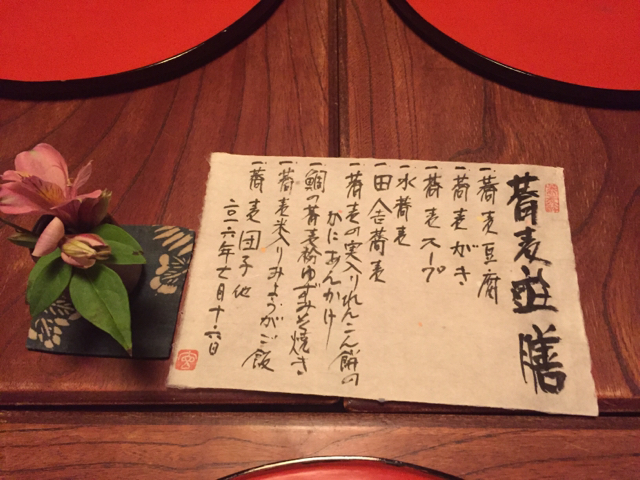 蕎麦醋膳
一蕎麦豆腐
一蕎麦がき
一蕎麦スープ
一水蕎麦
一田舎蕎麦
一蕎麦の実入りれんこん餅の
かにあんかけ
一鯛の蕎麦粉ゆずみそ焼き
一蕎麦米入りみょうがご飯
一蕎麦団子他
二〇一六年七月十六日